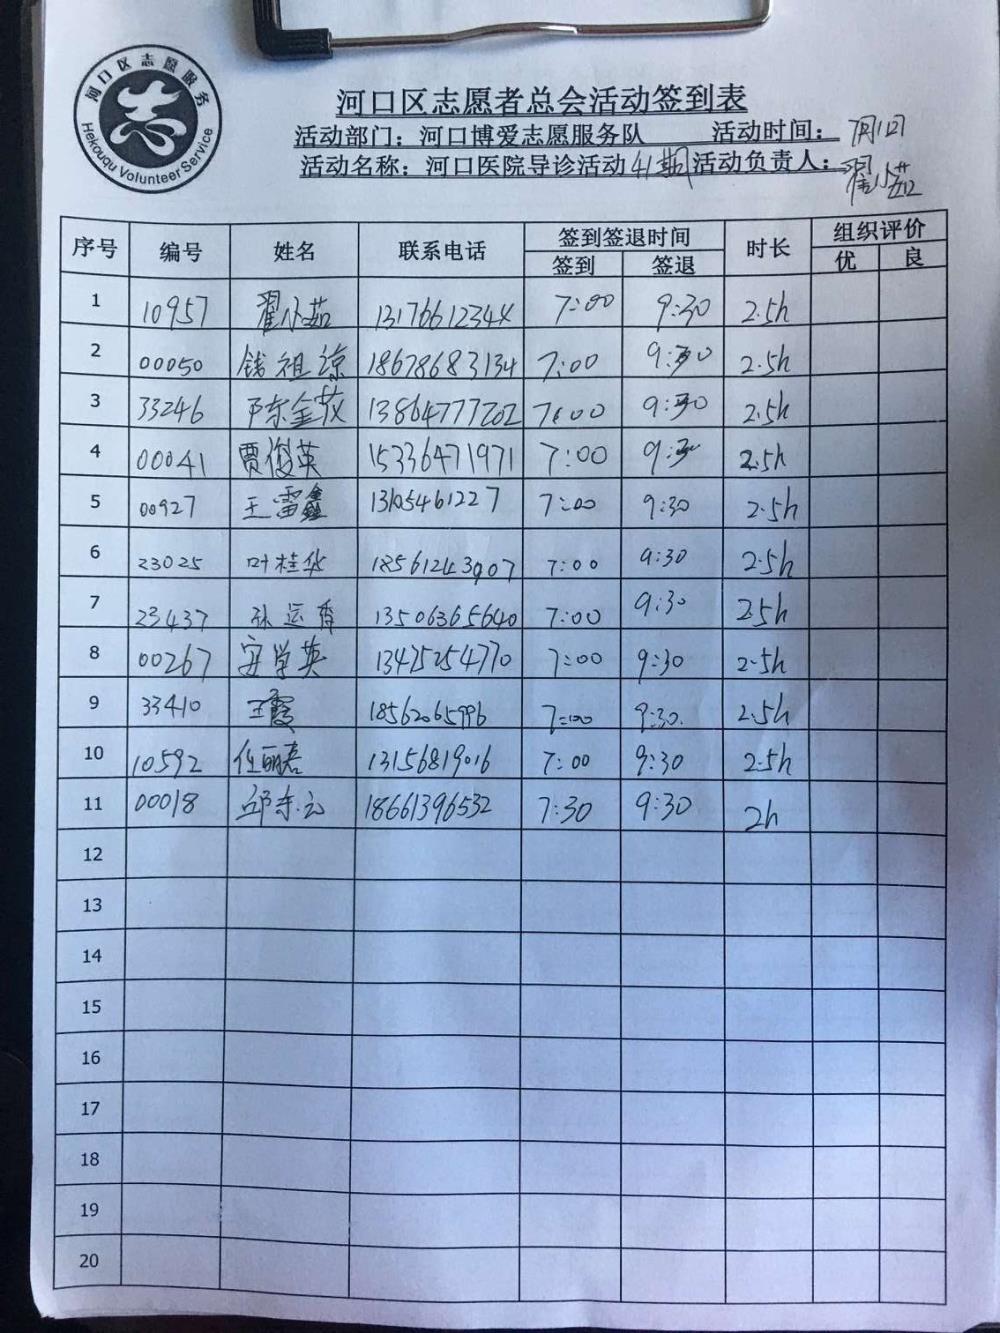 河口区志愿服务
志
Hekouqu Volunteer Service
河口区志愿者总会活动签到表
活动部门：河口博爱志愿服务队 活动时间：7月1日
活动名称：河口医院导诊活动41期 活动负责人：翟小茹
序号 编号 姓名 联系电话 签到签退时间 时长 组织评价
签到 签退 优 良
1 10957 翟小茹 13176612344 7:00 9:30 2.5h
2 00050 钱祖谅 18678683134 7:00 9:30 2.5h
3 33246 陈金孜 13864777202 7:00 9:30 2.5h
4 00041 贾俊英 15336471971 7:00 9:30 2.5h
5 00927 王雷鑫 13105461227 7:00 9:30 2.5h
6 23025 叶桂华 18561243907 7:00 9:30 2.5h
7 23437 孙运香 13506365640 7:00 9:30 2.5h
8 00267 安学英 13475254770 7:00 9:30 2.5h
9 33410 王霞 18562065996 7:00 9:30 2.5h
10 10592 任丽君 13156819016 7:00 9:30 2.5h
11 00018 邱东云 18661396532 7:30 9:30 2h
12
13
14
15
16
17
18
19
20